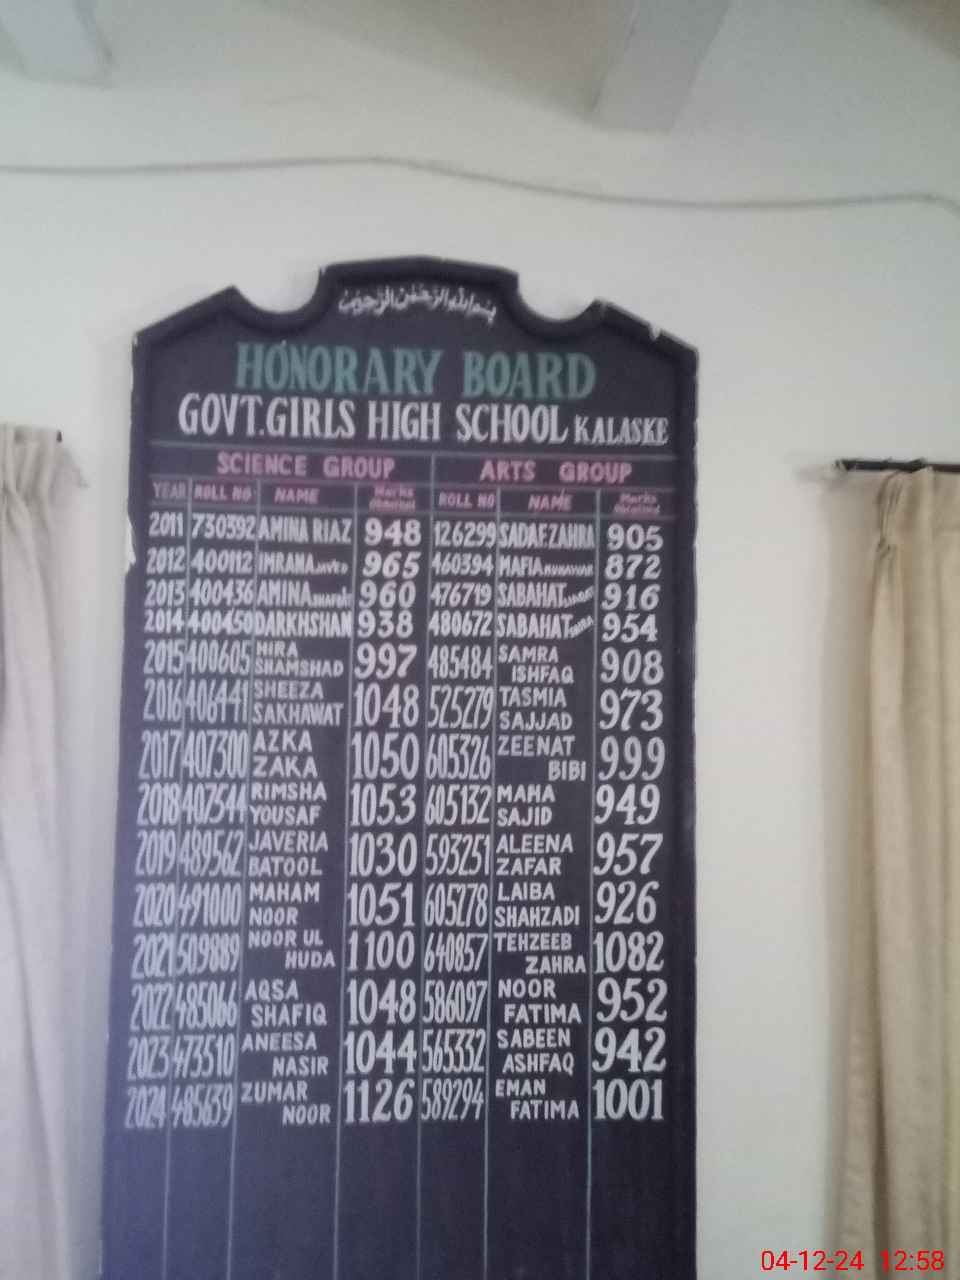 بسم الله الرحمن الرحيم
HONORARY BOARD
GOVT.GIRLS HIGH SCHOOL KALASKE
SCIENCE GROUP ARTS GROUP
YEAR ROLL NO NAME Marks Obtained ROLL NO NAME Marks Obtained
2011 730392 AMINA RIAZ 948 126299 SADAF ZAHRA 905
2012 400112 IMRANA JAVED 965 460394 MAFIA MUNAWAR 872
2013 400436 AMINA 960 476719 SABAHAT 916
2014 400450 DARKHSHAN 938 480672 SABAHAT 954
2015 400605 HIRA SHAMSHAD 997 485484 SAMRA ISHFAQ 908
2016 406441 SHEEZA SAKHAWAT 1048 525279 TASMIA SAJJAD 973
2017 407300 AZKA ZAKA 1050 605326 ZEENAT BIBI 999
2018 407544 RIMSHA YOUSAF 1053 605132 MAHA SAJID 949
2019 489562 JAVERIA BATOOL 1030 593251 ALEENA ZAFAR 957
2020 491000 MAHAM NOOR 1051 605278 LAIBA SHAHZADI 926
2021 509889 NOOR UL HUDA 1100 640857 TEHZEEB ZAHRA 1082
2022 485066 AQSA SHAFIQ 1048 586097 NOOR FATIMA 952
2023 473510 ANEESA NASIR 1044 565332 SABEEN ASHFAQ 942
2024 485639 ZUMAR NOOR 1126 589294 EMAN FATIMA 1001
04-12-24 12:58